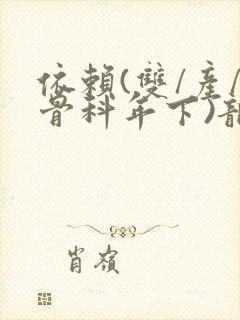 依賴(雙/產/
骨科年下)
肖嶺